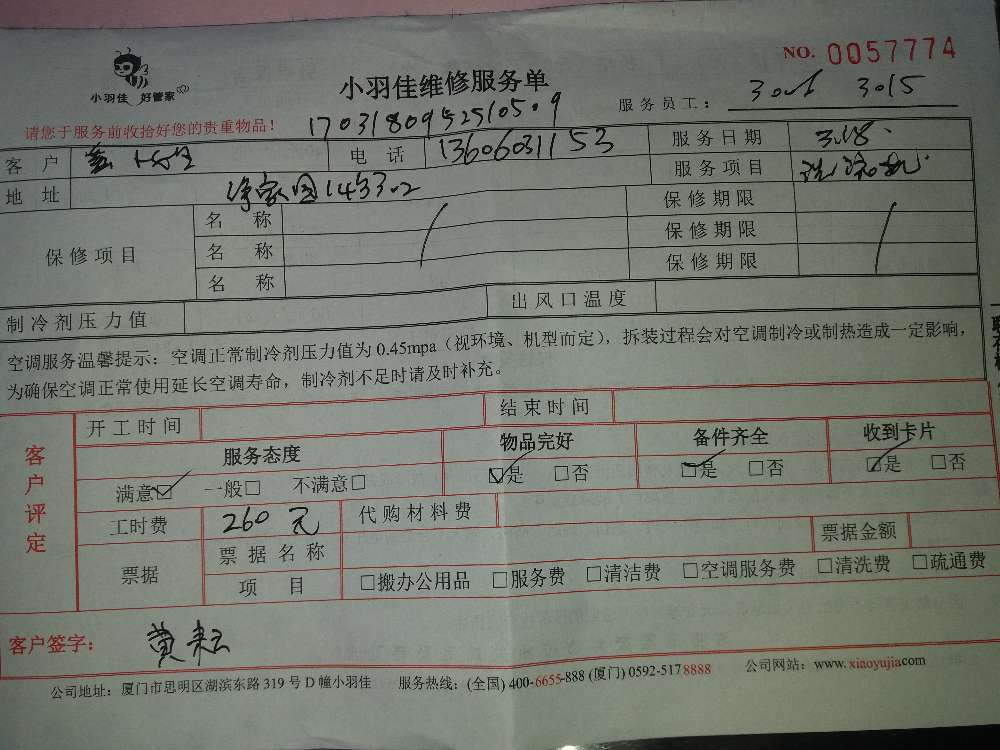 NO. 0057774
小羽佳 好管家
小羽佳维修服务单
服务员工： 3015
请您于服务前收拾好您的贵重物品！
客 户 电 话 13606031153 服务日期 3.18.
地 址 1433.2 服务项目
保修项目 名 称 保修期限
名 称 保修期限
名 称 保修期限
制冷剂压力值 出风口温度
空调服务温馨提示：空调正常制冷剂压力值为 0.45mpa（视环境、机型而定），拆装过程会对空调制冷或制热造成一定影响，
为确保空调正常使用延长空调寿命，制冷剂不足时请及时补充。
客户评定
开工时间 结束时间
服务态度 物品完好 备件齐全 收到卡片
满意☑ 一般□ 不满意□ ☑是 □否 ☑是 □否 ☑是 □否
工时费 260 元 代购材料费
票据 票据名称 票据金额
项 目 □搬办公用品 □服务费 □清洁费 □空调服务费 □清洗费 □疏通费
客户签字： 黄
公司地址：厦门市思明区湖滨东路 319 号 D 幢小羽佳 服务热线：(全国) 400-6655-888 (厦门) 0592-5178888 公司网站：www.xiaoyujia.com